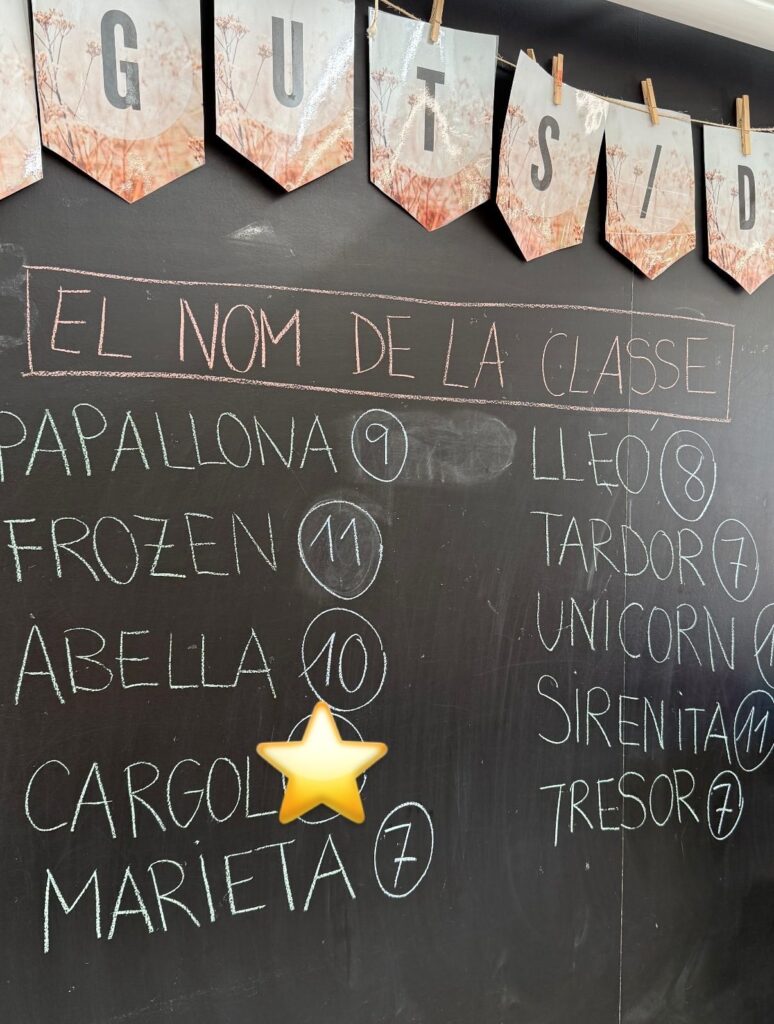 GUTS/D
EL NOM DE LA CLASSE
PAPALLONA 9
FROZEN 11
ABELLA 10
CARGOL
MARIETA 7
LLEÓ 8
TARDOR 7
UNICORN
SIRENITA 11
TRESOR 7